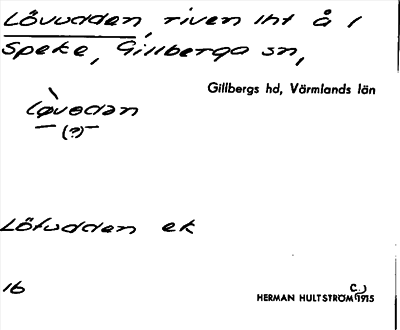 Lövudden, riven lht å i
Speke, Gillberga sn,
Gillbergs hd, Värmlands län
Løvedən
(?)
Lövudden ek
16
C.)
HERMAN HULTSTRÖM 1915